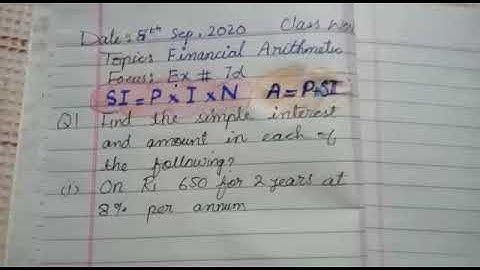 Date: 8th Sep, 2020 Class Wor
Topic: Financial Arithmetic
Focus: Ex # 7d
SI = P × I × N A = P+SI
Q1 Find the simple interest
and amount in each of
the following?
(i) On Rs 650 for 2 years at
8% per annum